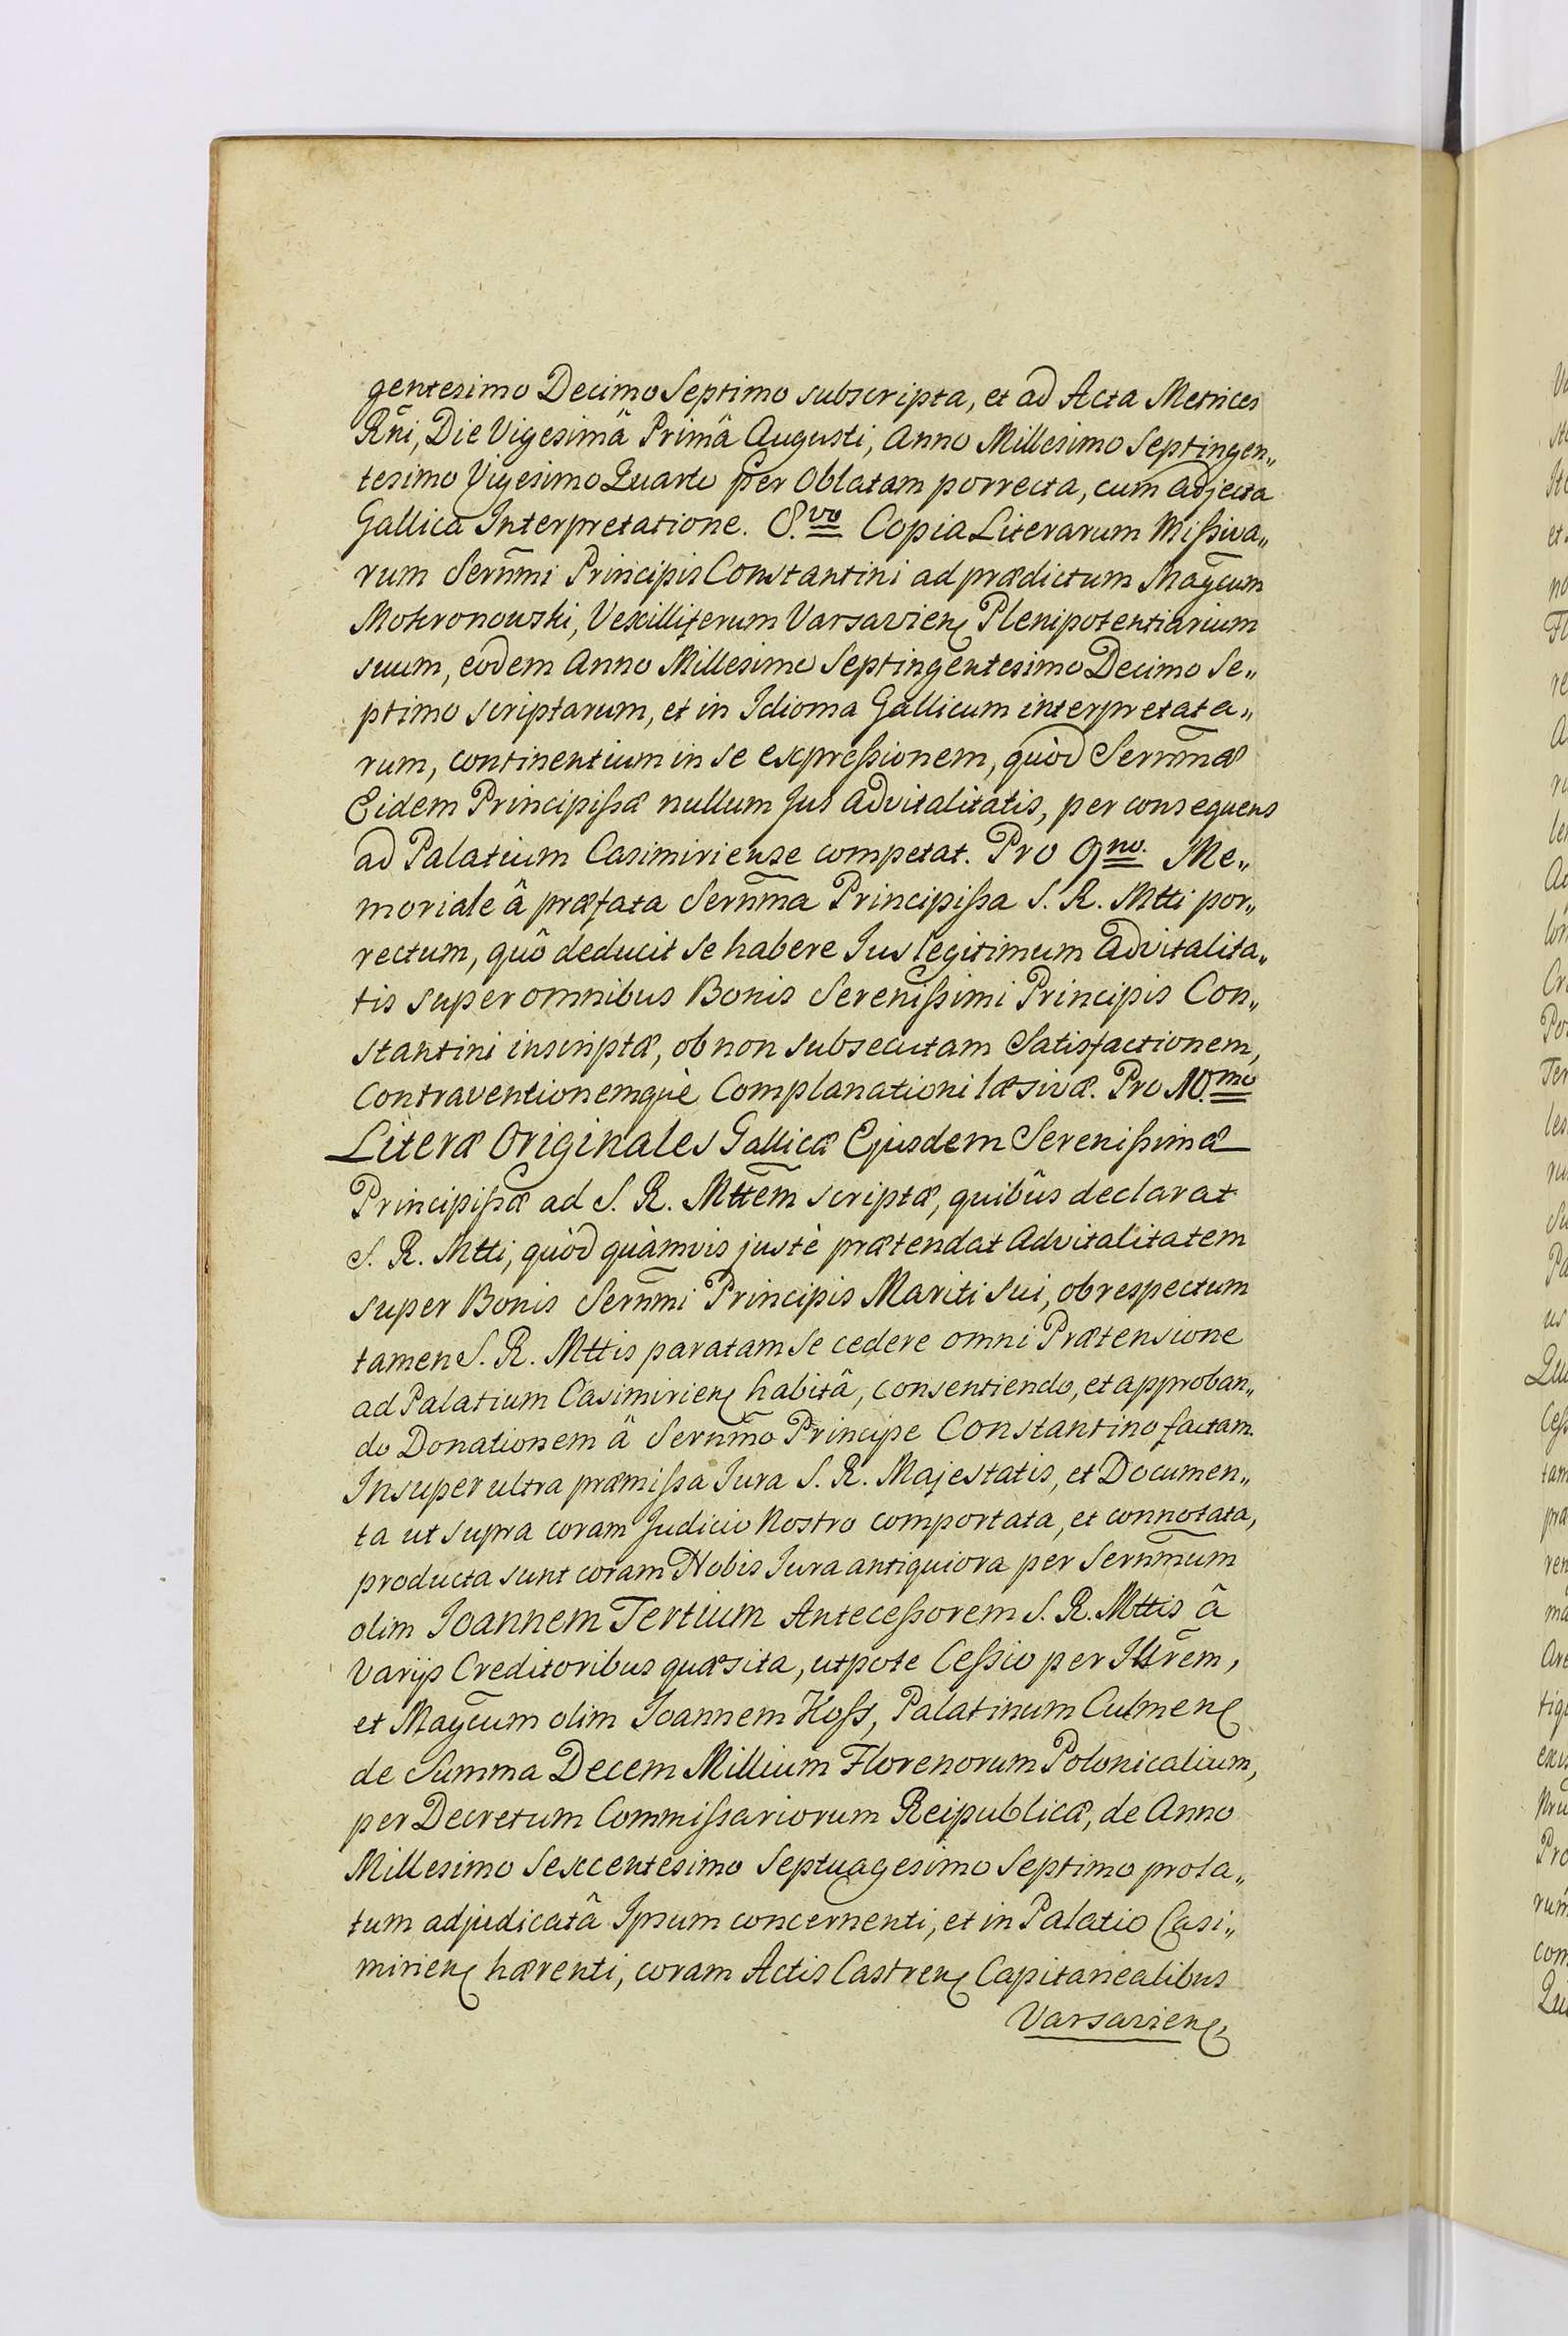 gentesimo Decimo Septimo subscripta, et ad Acta Metrices
Rñi, Die Vigesimâ Primâ Augusti, Anno Millesimo Septingen„
tesimo Vigesimo Quarto per Oblatam porrecta, cum adjecta
Gallica Interpretatione. 8.vo Copia Literarum Missiva„
rum Sernm̃i Principis Constantini ad prædictum Magc̃um
Mokronowski, Vexilliferum Varsavien̨ Plenipotentiarium
suum, eodem Anno Millesimo Septingentesimo Decimo Se„
ptimo scriptarum, et in Idioma Gallicum interpretata„
rum, continentium in se expressionem, quòd Sernm̃æ
Eidem Principissæ nullum Jus Advitalitatis, per consequens
ad Palatium Casimiriense competat. Pro 9no. Me„
moriale â præfata Sernm̃a Principissa S. R. Mtti por„
rectum, quô deducit se habere Jus legitimum Advitalita„
tis super omnibus Bonis Serenissimi Principis Con„
stantini inscriptæ, ob non subsecutam Satisfactionem,
Contraventionemquè Complanationi læsivæ. Pro 10.mo
Literæ Originales Gallicæ Ejusdem Serenissimæ
Principissæ ad S. R. Mttẽm scriptæ, quibûs declarat
S. R. Mtti, quòd quàmvis justè prætendat Advitalitatem
super Bonis Sernm̃i Principis Mariti sui, ob respectum
tamen S. R. Mttis paratam se cedere omni Prætensione
ad Palatium Casimirien̨ habitâ, consentiendo, et approban„
do Donationem â Sernm̃o Principe Constantino factam.
Insuper ultra præmissa Jura S. R. Majestatis, et Documen„
ta ut supra coram Judicio Nostro comportata, et connotata,
producta sunt coram Nobis Jura antiquiora per Sernm̃um
olim Joannem Tertium Antecessorem S. R. Mttis â
Varijs Creditoribus quæsita, utpote Cessio per Illrẽm,
et Magc̃um olim Joannem Koss, Palatinum Culmen̨
de Summa Decem Millium Florenorum Polonicalium,
per Decretum Commissariorum Reipublicæ, de Anno
Millesimo Sexcentesimo Septuagesimo Septimo prola„
tum adjudicatâ Ipsum concernenti, et in Palatio Casi„
mirien̨ hærenti, coram Actis Castren̨ Capitanealibus
Varsavien̨,